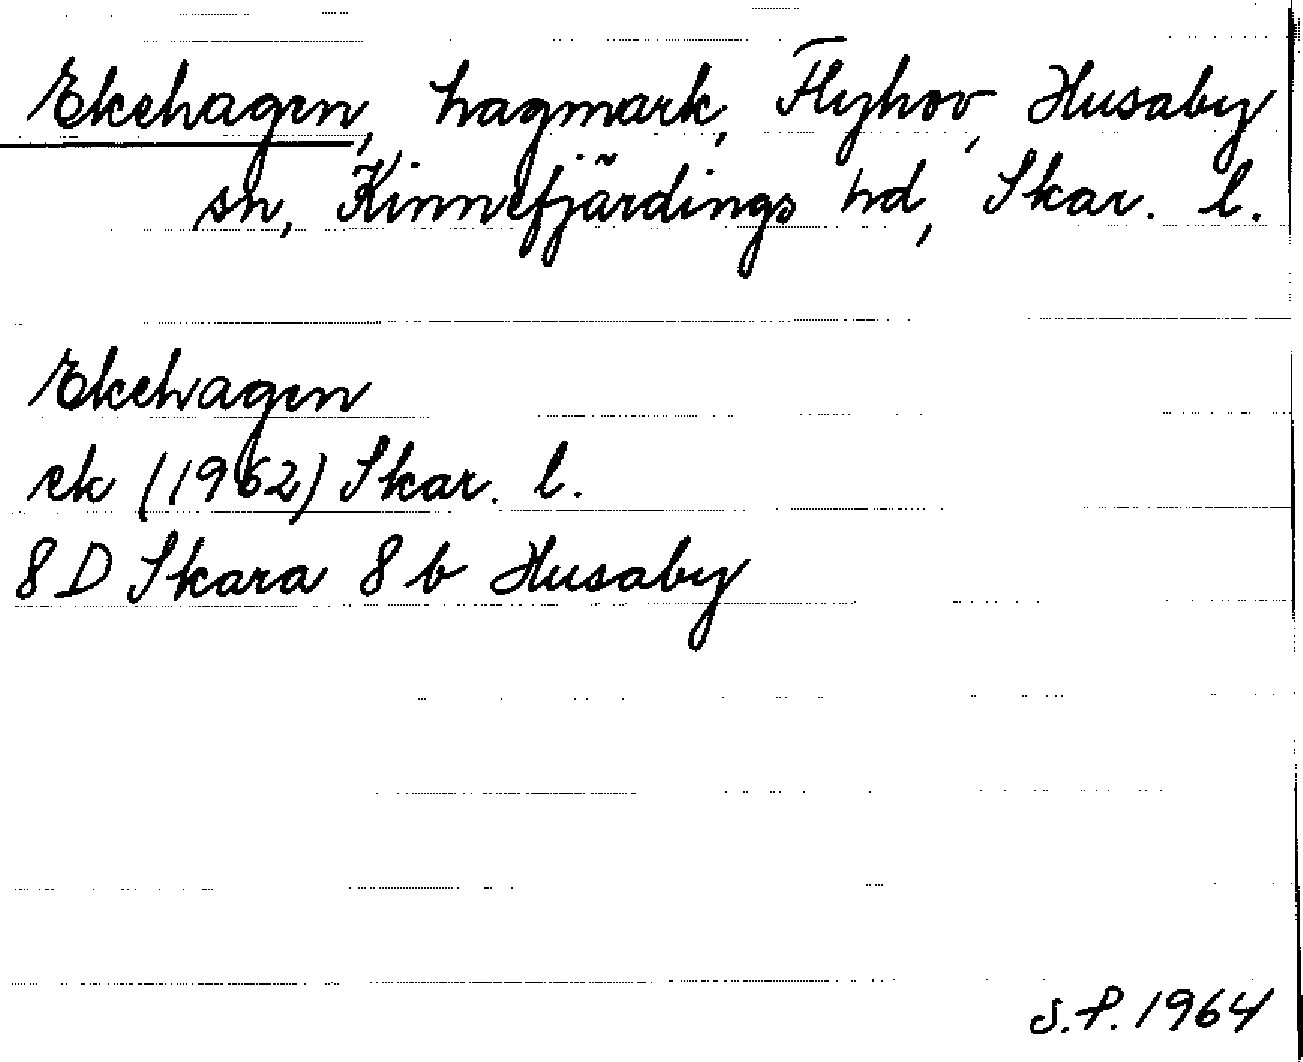 Ekehagen, hagmark, Flyhov, Husaby
sn, Kinnefjärdings hd, Skar. l.
Ekehagen
ek (1962) Skar. l.
8 D Skara 8 b Husaby
S.P. 1964